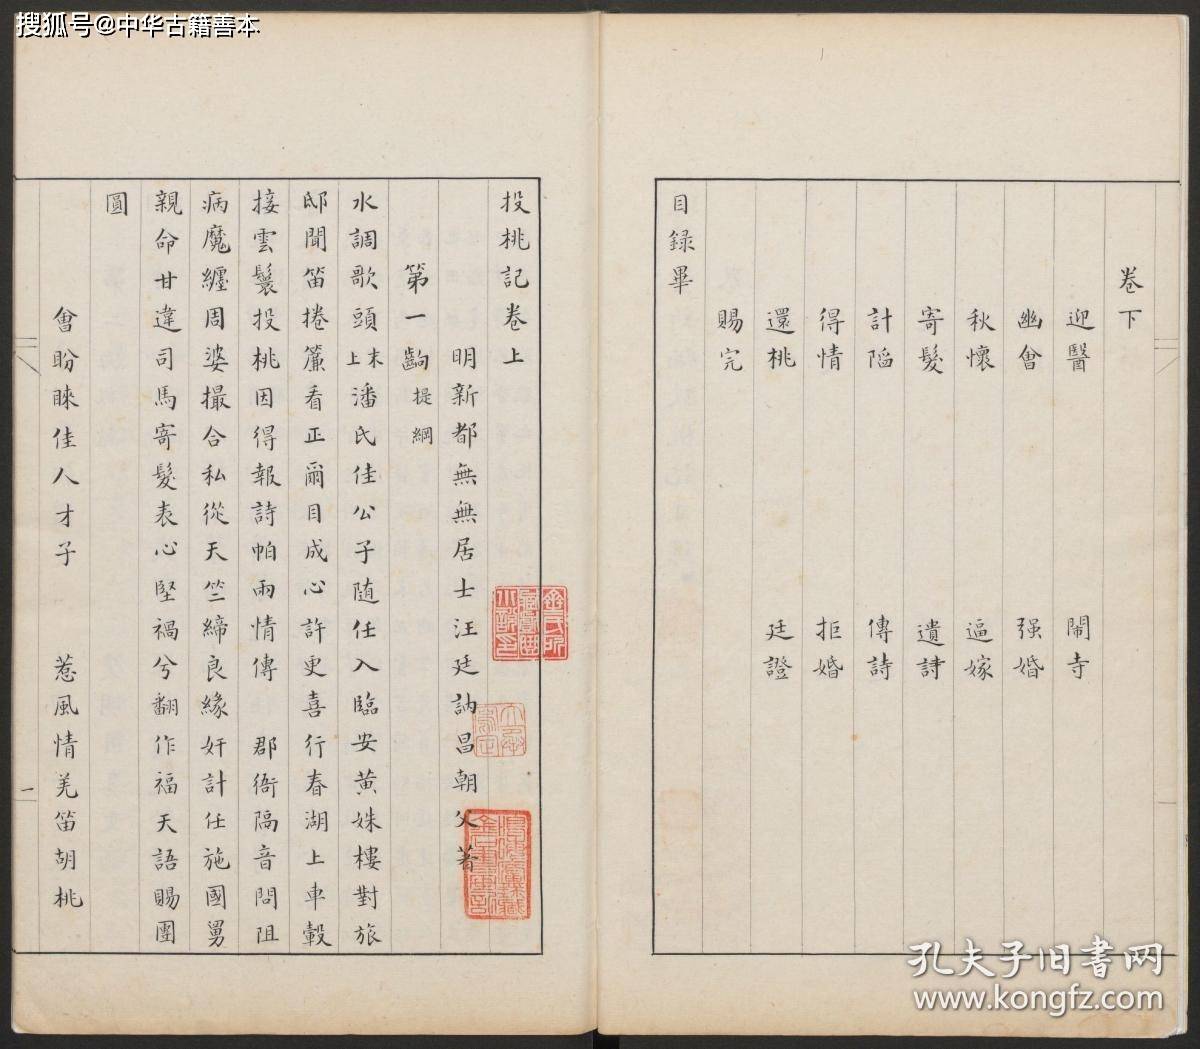 搜狐号@中华古籍善本
卷下
迎醫 鬧寺
幽會 强婚
秋懷 逼嫁
寄髮 遺詩
計陷 傳詩
得情 拒婚
還桃 廷證
賜完
目録畢
投桃記卷上
明新都無無居士汪廷訥昌朝父著
第一齣 提綱
水調歌頭末上潘氏佳公子随任入臨安黄姝樓對旅
邸聞笛捲簾看正爾目成心許更喜行春湖上車轂
接雲鬟投桃因得報詩帕兩情傳 郡衙隔音問阻
病魔纏周婆撮合私從天竺締良緣奸計任施國舅
親命甘違司馬寄髮表心堅禍兮翻作福天語賜團
圓
會盼睞佳人才子 惹風情羌笛胡桃
一
孔夫子旧书网
www.kongfz.com